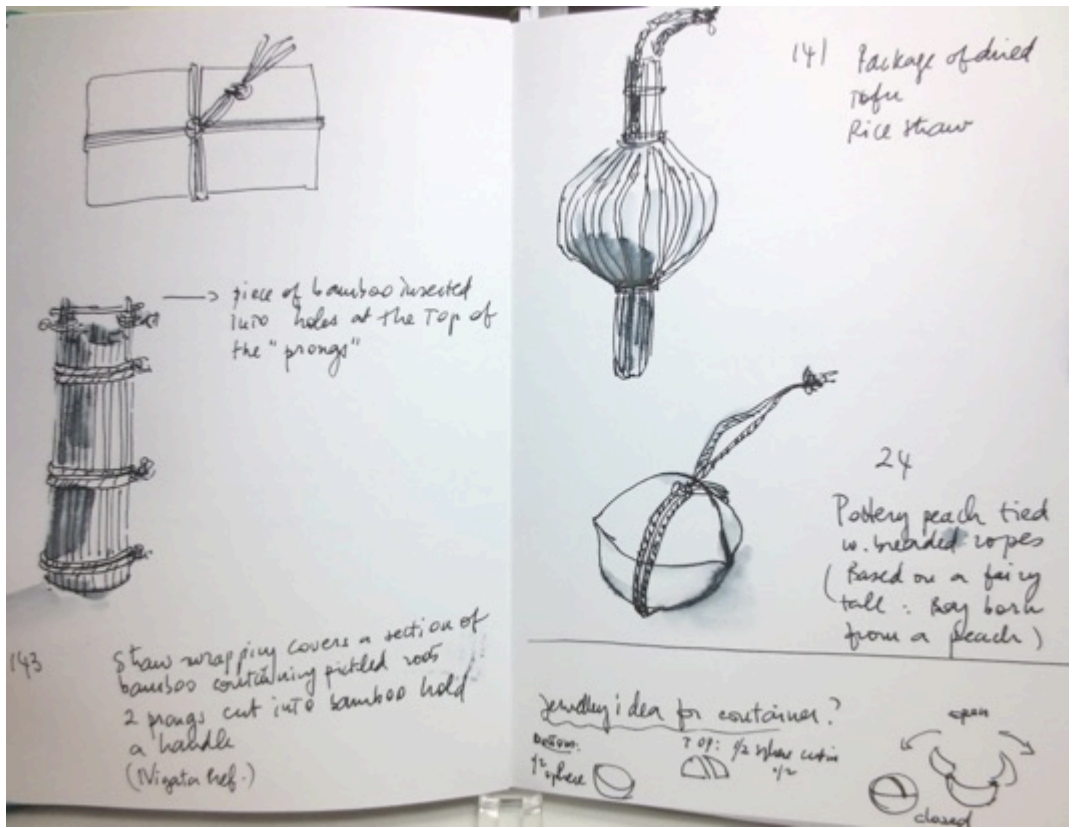 piece of bamboo inserted
into holes at the top of
the "prongs"
143
Straw wrapping covers a section of
bamboo containing pickled roots
2 prongs cut into bamboo hold
a handle
(Nigata Pref.)
141
Package of dried
Tofu
Rice straw
24
Pottery peach tied
w. breaded ropes
(Based on a fairy
tall : Boy born
from a peach)
Jewelley idea for container?
Bottom:
1/2 sphere
TOP: 1/2 sphere cut in
1/2
open
closed